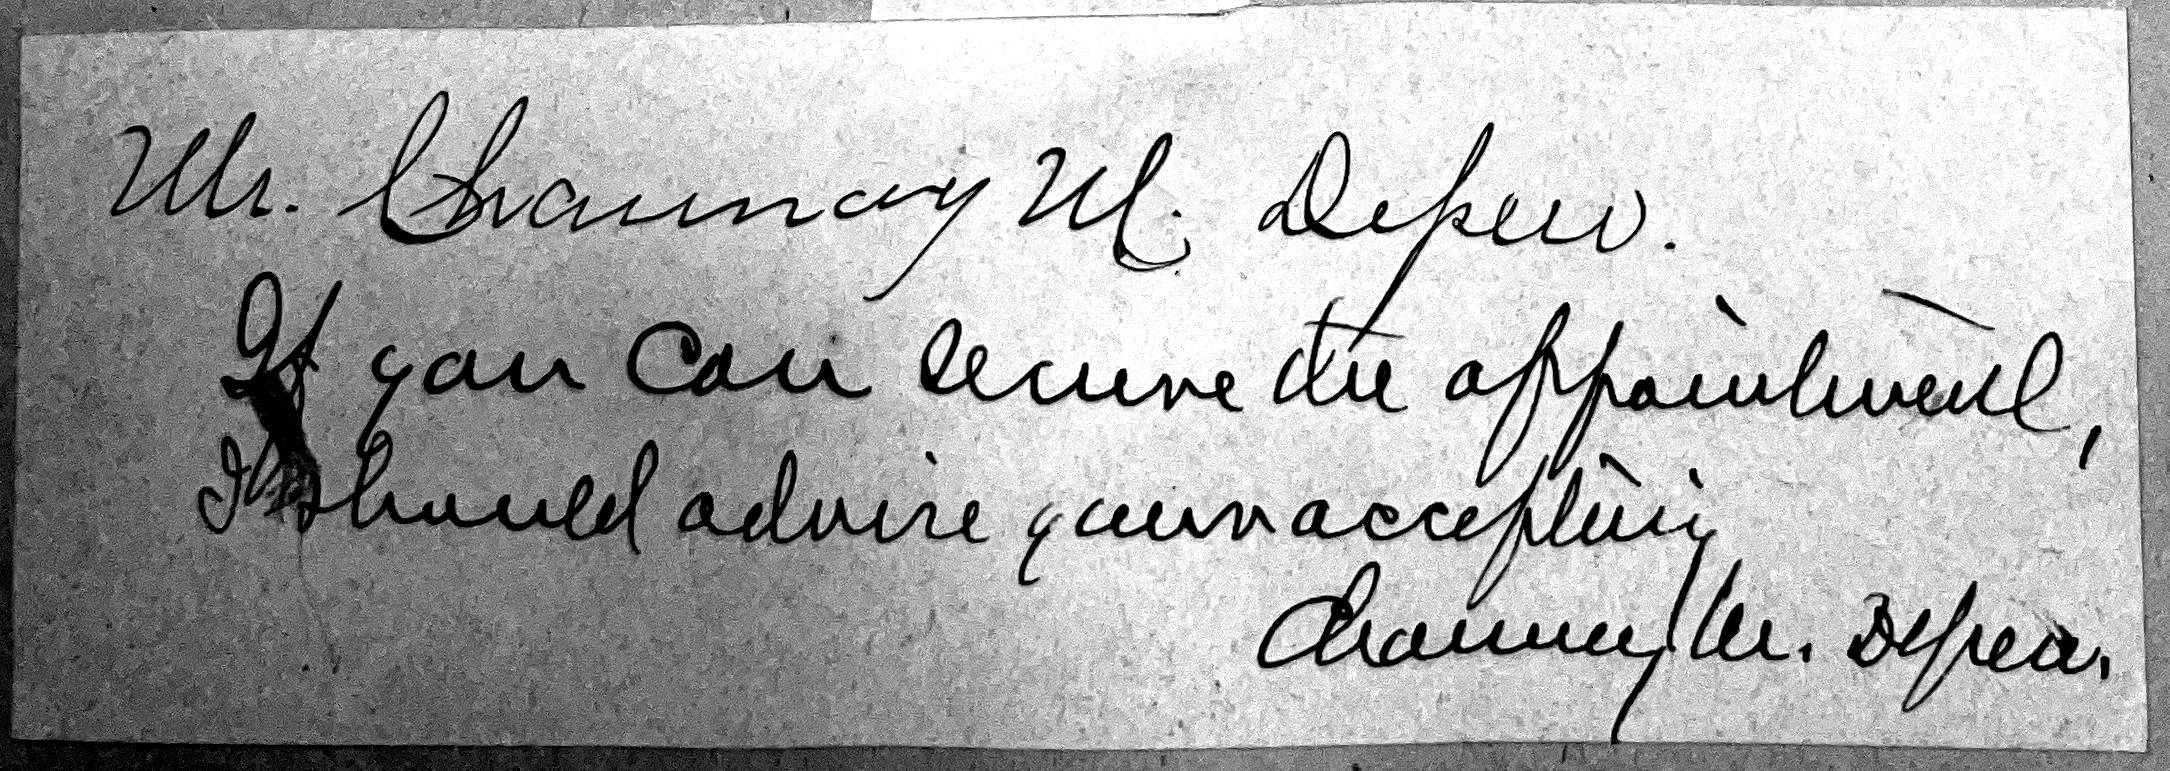 Mr. Chauncey M. Depew.
If you can secure the appointment,
I should advise your accepting
Chauncey M. Depew.